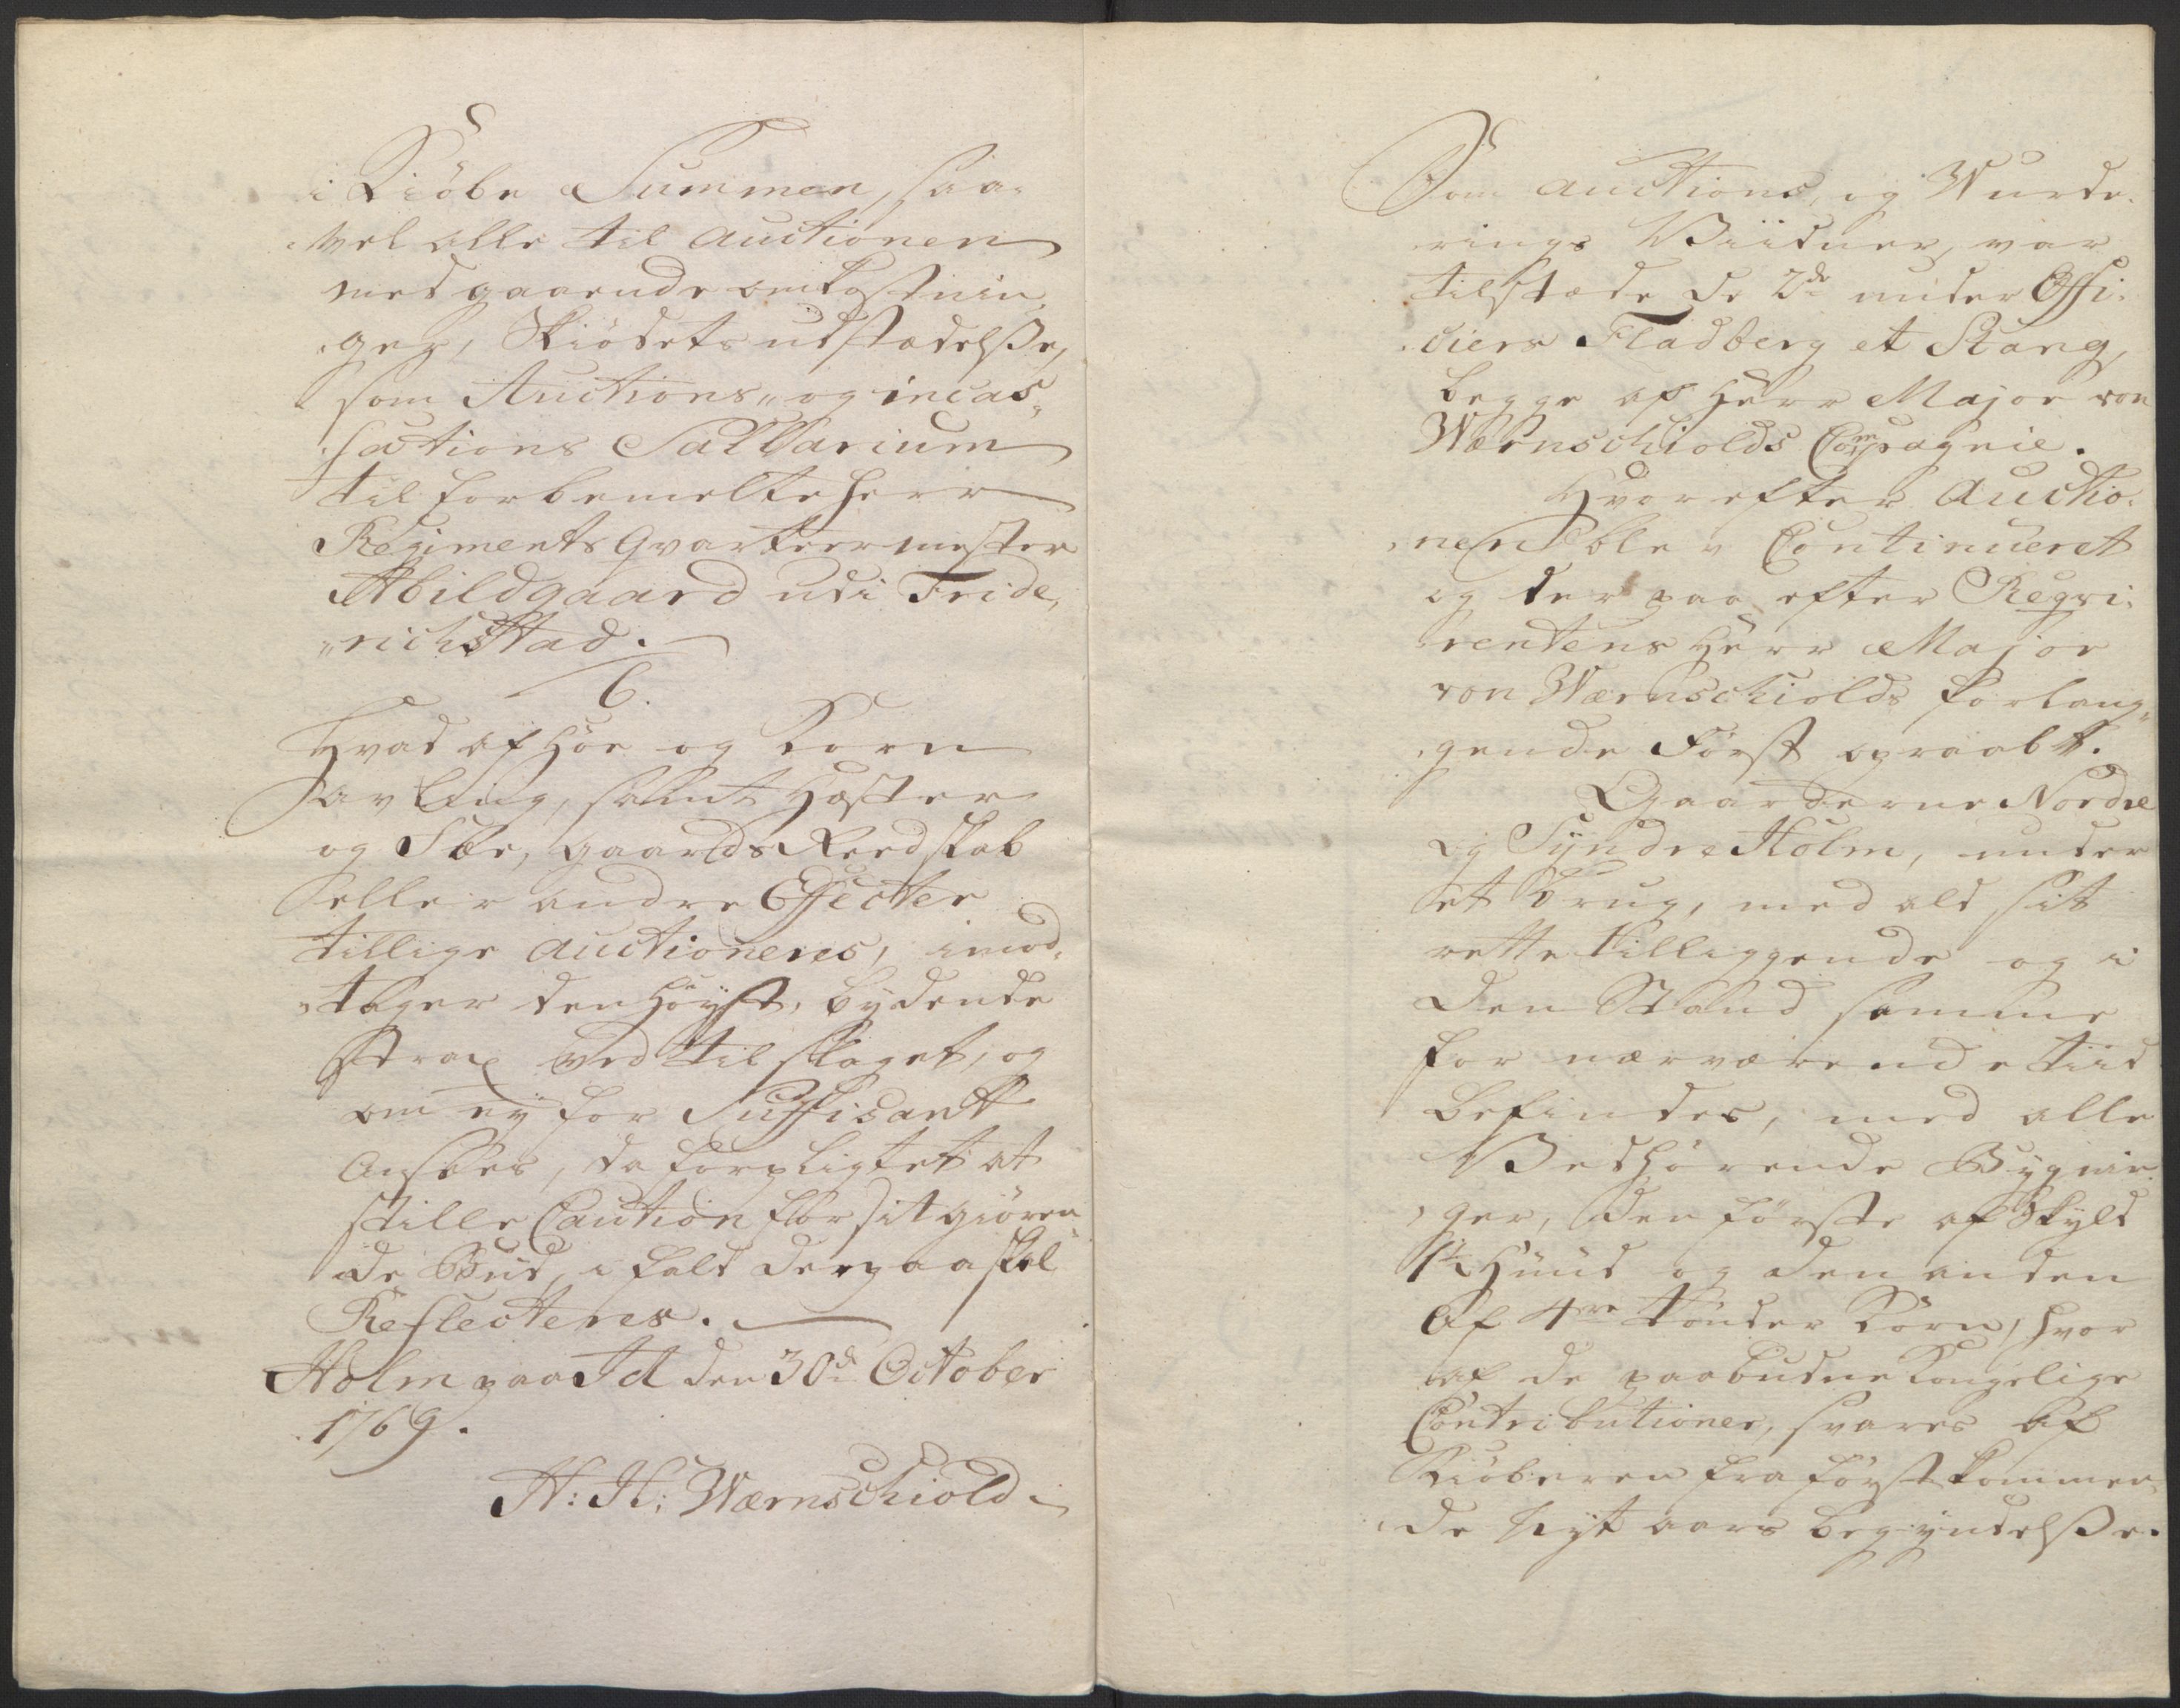 i Kiöbe Summen, saa¬
vel alle til Auctionen
medgaaende omkostnin¬
ger, Skiödets udstædelße,
som Auctions- og incas¬
sations Sallarium
til forbemelte Herr
Regiments Qvarteermester
Abildgaard udi Fride¬
richstad.
6.
Hvad af Höe og Korn
avling, samt Hæster
og Föe, gaards Reedskab
eller andre Effecter
tillige auctioneres, imod¬
tager den Höyst, bydende
strax ved tilslaget, og
om ey for Suffisant
ansees, da forpligtet at
stille Caution for sit giören¬
de Bud, i fald derpaa skal
Reflecteres.
Holm paa Id den 30de October
1769.
H: H: Wærnschiold
Som Auctions, og Wurde¬
rings Viidner, var
tilstæde de 2de under Offi¬
ciers Fladberg et Stang,
begge af Herr Major von
Wærnschiolds Compagnie.
Hvorefter Auctio¬
nen blev Continueret
og derpaa efter Reqvi¬
rentens Herr Major
von Wærnschiolds forlan¬
gende Først opraabt.
Gaarderne Nordre
og Syndre Holm, under
et brug, med ald sit
rette tilliggende og i
den Stand samme
for nærværende tiid
befindes, med alle
Vedhörende Bygnin¬
ger, den förste af Skyld
1½ Huud og den anden
af 4re tönder Korn, hvor
af de paabudne Kongelige
Contributioner, svares af
Kiöberen fra förstkommen¬
de Nyt aars begyndelße.